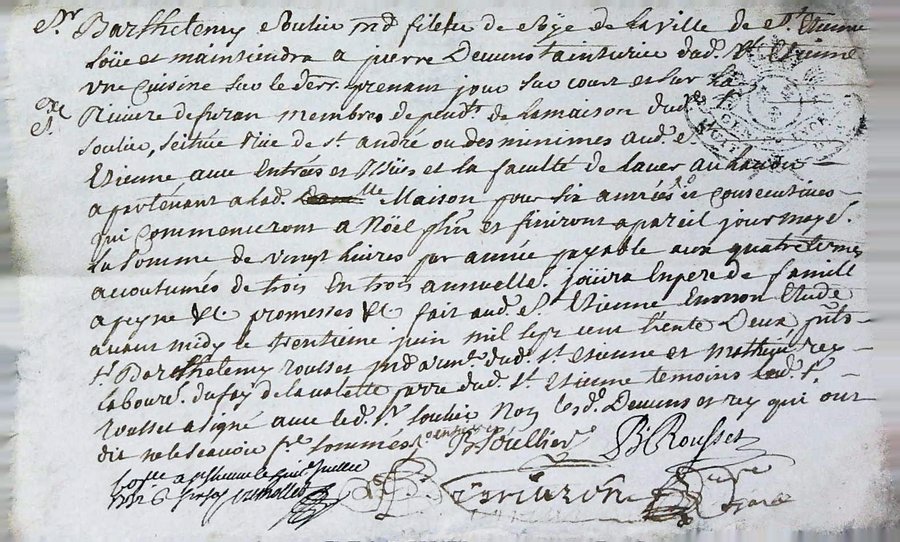 Sr Barthelemy Soulier md fileur de Soÿe de la ville de St Etienne
Loüe et maintiendra a pierre Devuns tainturier dud. St Etienne
vne Cuisine sur le derr. prenant jour sur court et sur la
Riuiere defuran membres depend. de lamaison dud.
Soulier, scituée Rüe de St andré ou des minimes aud. St
Etienne auec Entrées et et la faculté de lauer au
apartenant a lad. Maison pour six années et consecutiues
qui commenceront a Nöel phn et finiront a pareil jour moye.
la somme de vingt liures par année payable aux quatre termes
accoutumés de trois En trois annuelle. joüira En pere de famill
a peyne &c promesses &c fait aud. St Etienne En mon Etude
auant midy le trentieme juin mil sept cent trente Deux, pnts
sr Barthelemy rousset md dud. St Etienne et mathieu rey
laboure. dufay de la valette parre dud. St Etienne temoins led. sr
rousset a signé auec led. sr Soulier Non lesd. Devuns et rey qui ont
dit ne le scauoir de ce sommés
B Soullier B Rousset